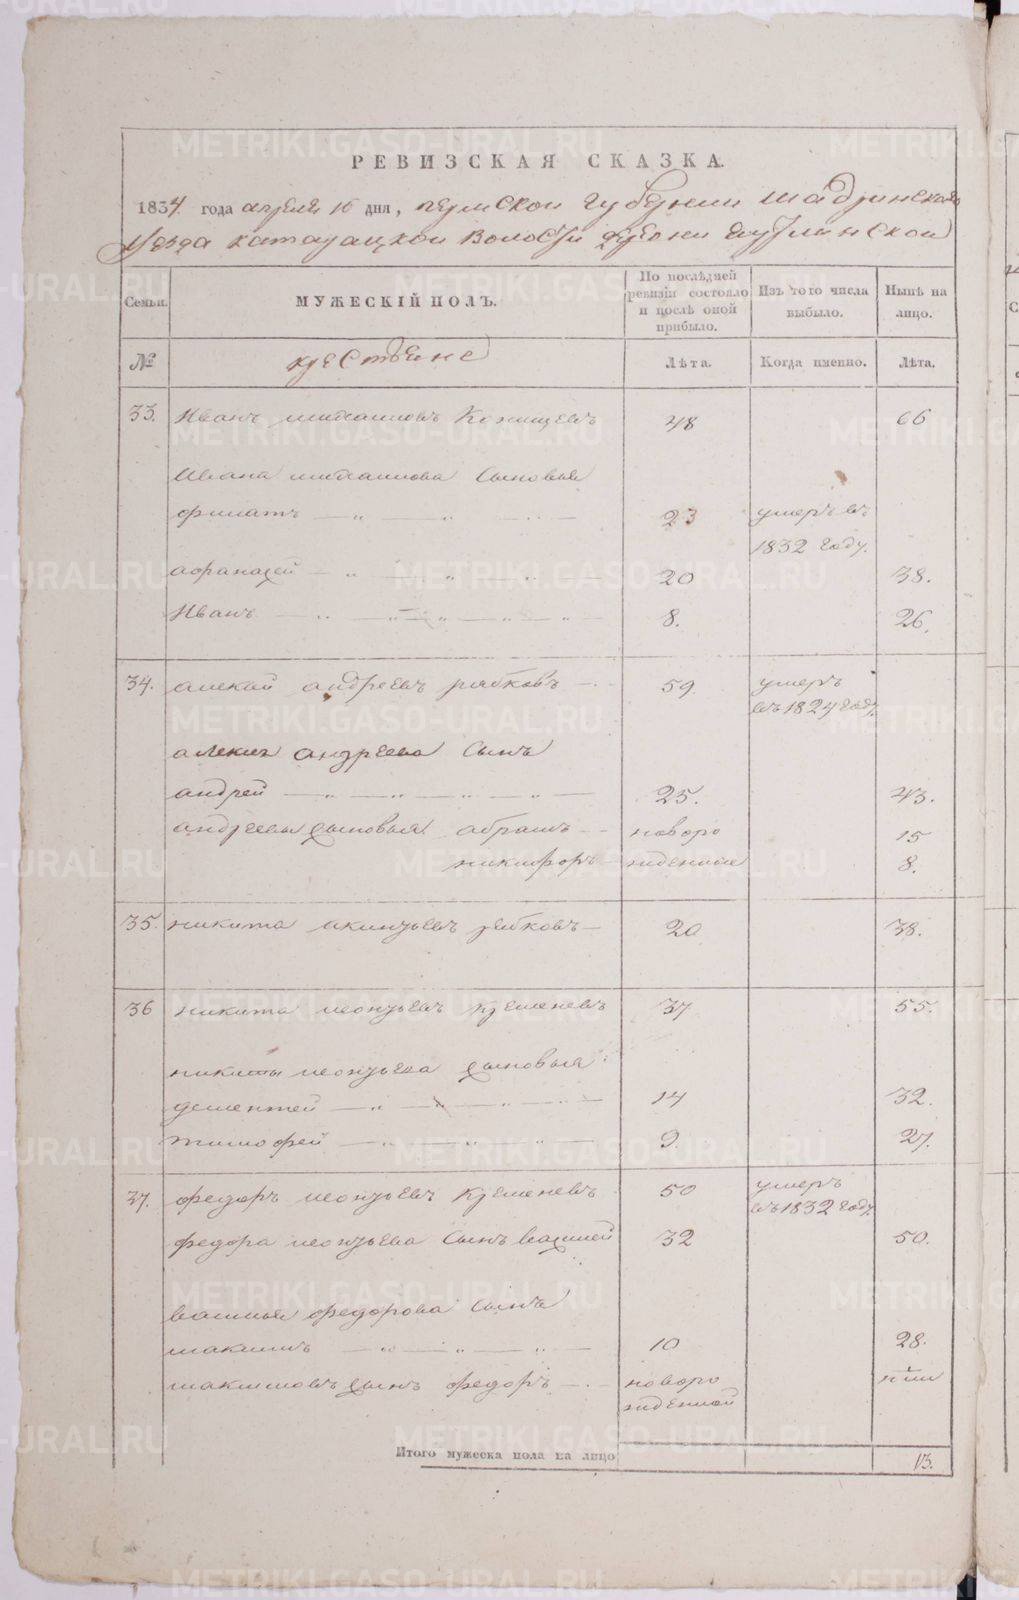 РЕВИЗСКАЯ СКАЗКА.
1834 года апреля 16 дня, пермской губернии шадринскаго
уезда катаицкой волости
Семьи.
МУЖЕСКІЙ ПОЛЪ.
По послѣдней ревизіи состояло и послѣ оной прибыло.
Изъ того числа выбыло.
Нынѣ на лицо.
№
крестьяне
Лѣта.
Когда именно.
Лѣта.
33. Иванъ михаиловъ 48 66
Ивана михаилова сыновья
филатъ 23 умеръ въ
1832 году.
афанасей 20 38.
Иванъ 8. 26.
34. алекѣй андреевъ рябковъ 59 умеръ
въ 1824 году.
андреева сынъ
андрей 25. 43.
андреевы сыновья абрамъ новоро 15
никифоръ жденныя 8.
35. никита рябковъ 20 38.
36 никита леонтьевъ кременевъ 37 55.
никиты леонтьева сыновья
дементей 14 32.
тимофей 9. 27.
37. федоръ леонтьевъ кременевъ 50 умеръ
въ 1832 году.
федора леонтьева сынъ василей 32 50.
василья федорова сынъ
максимъ 10 28.
максимовъ сынъ федоръ новоро
жденной
Итого мужеска пола на лицо 13.
METRIKI.GASO-URAL.RU